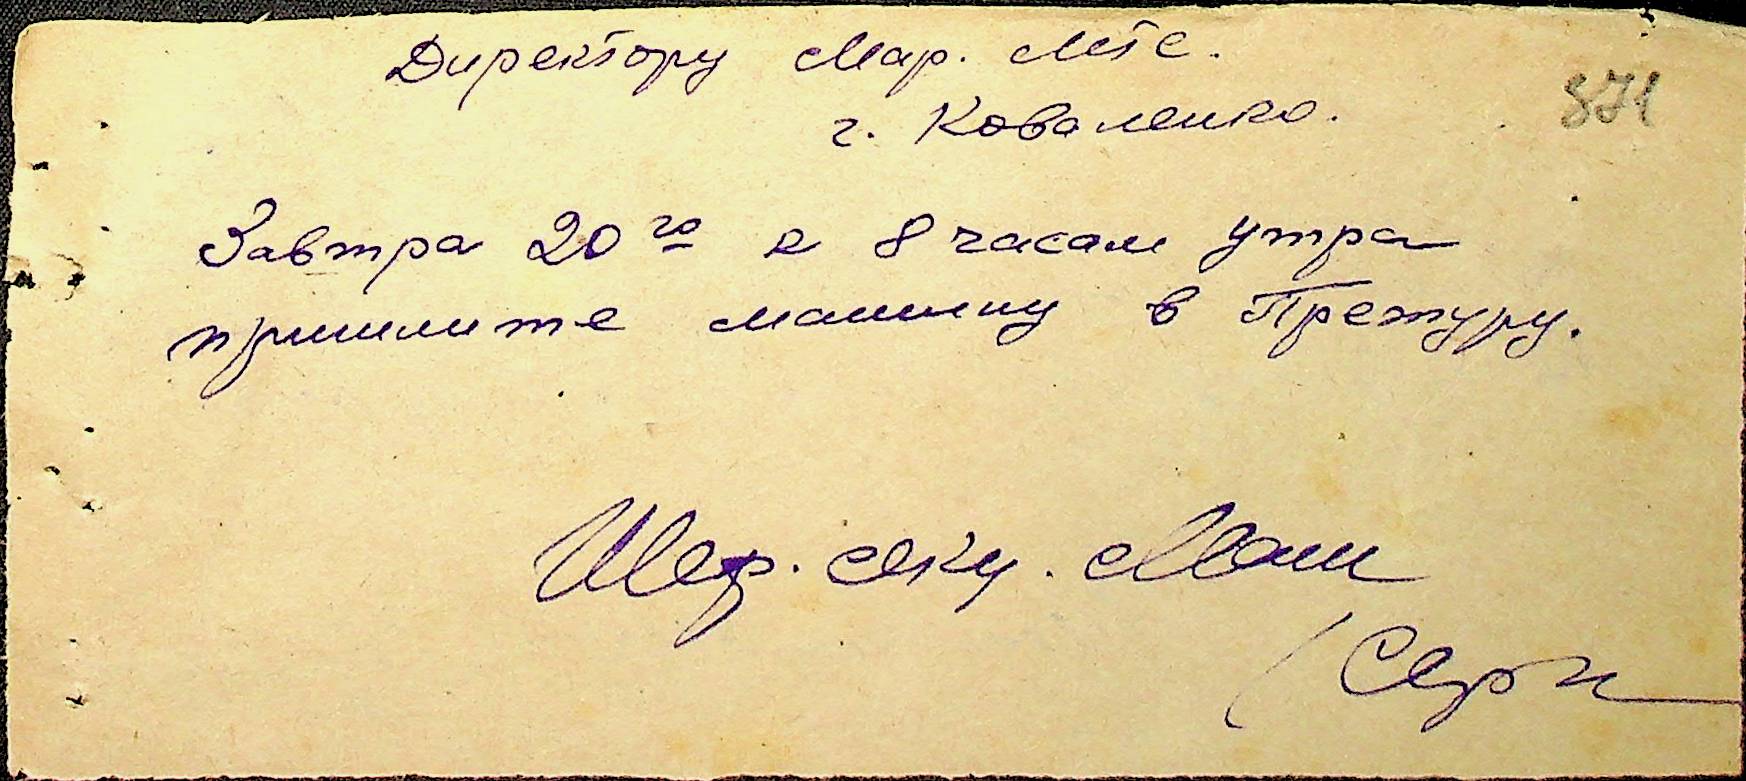 Директору Мар. МТС.
г. Коваленко.
871
Завтра 20го к 8 часам утра
пришлите машину в Претуру.
Шеф.